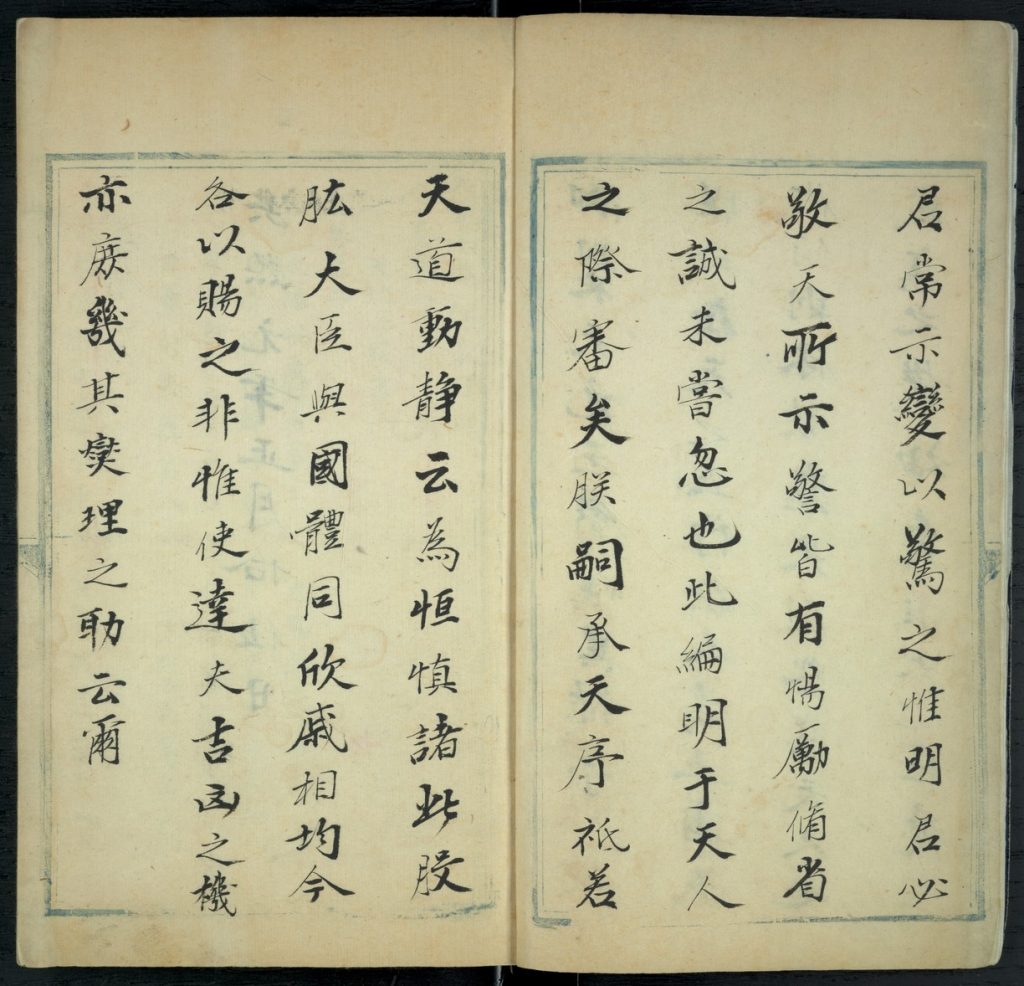 君常示變以驚之惟明君必
敬天所示警皆有惕勵脩省
之誠未嘗忽也此編明于天人
之際審矣朕嗣承天序祗若
天道動静云為恒慎諸此股
肱大臣與國體同欣戚相均今
各以賜之非惟使達夫吉凶之機
亦庻幾其燮理之助云爾